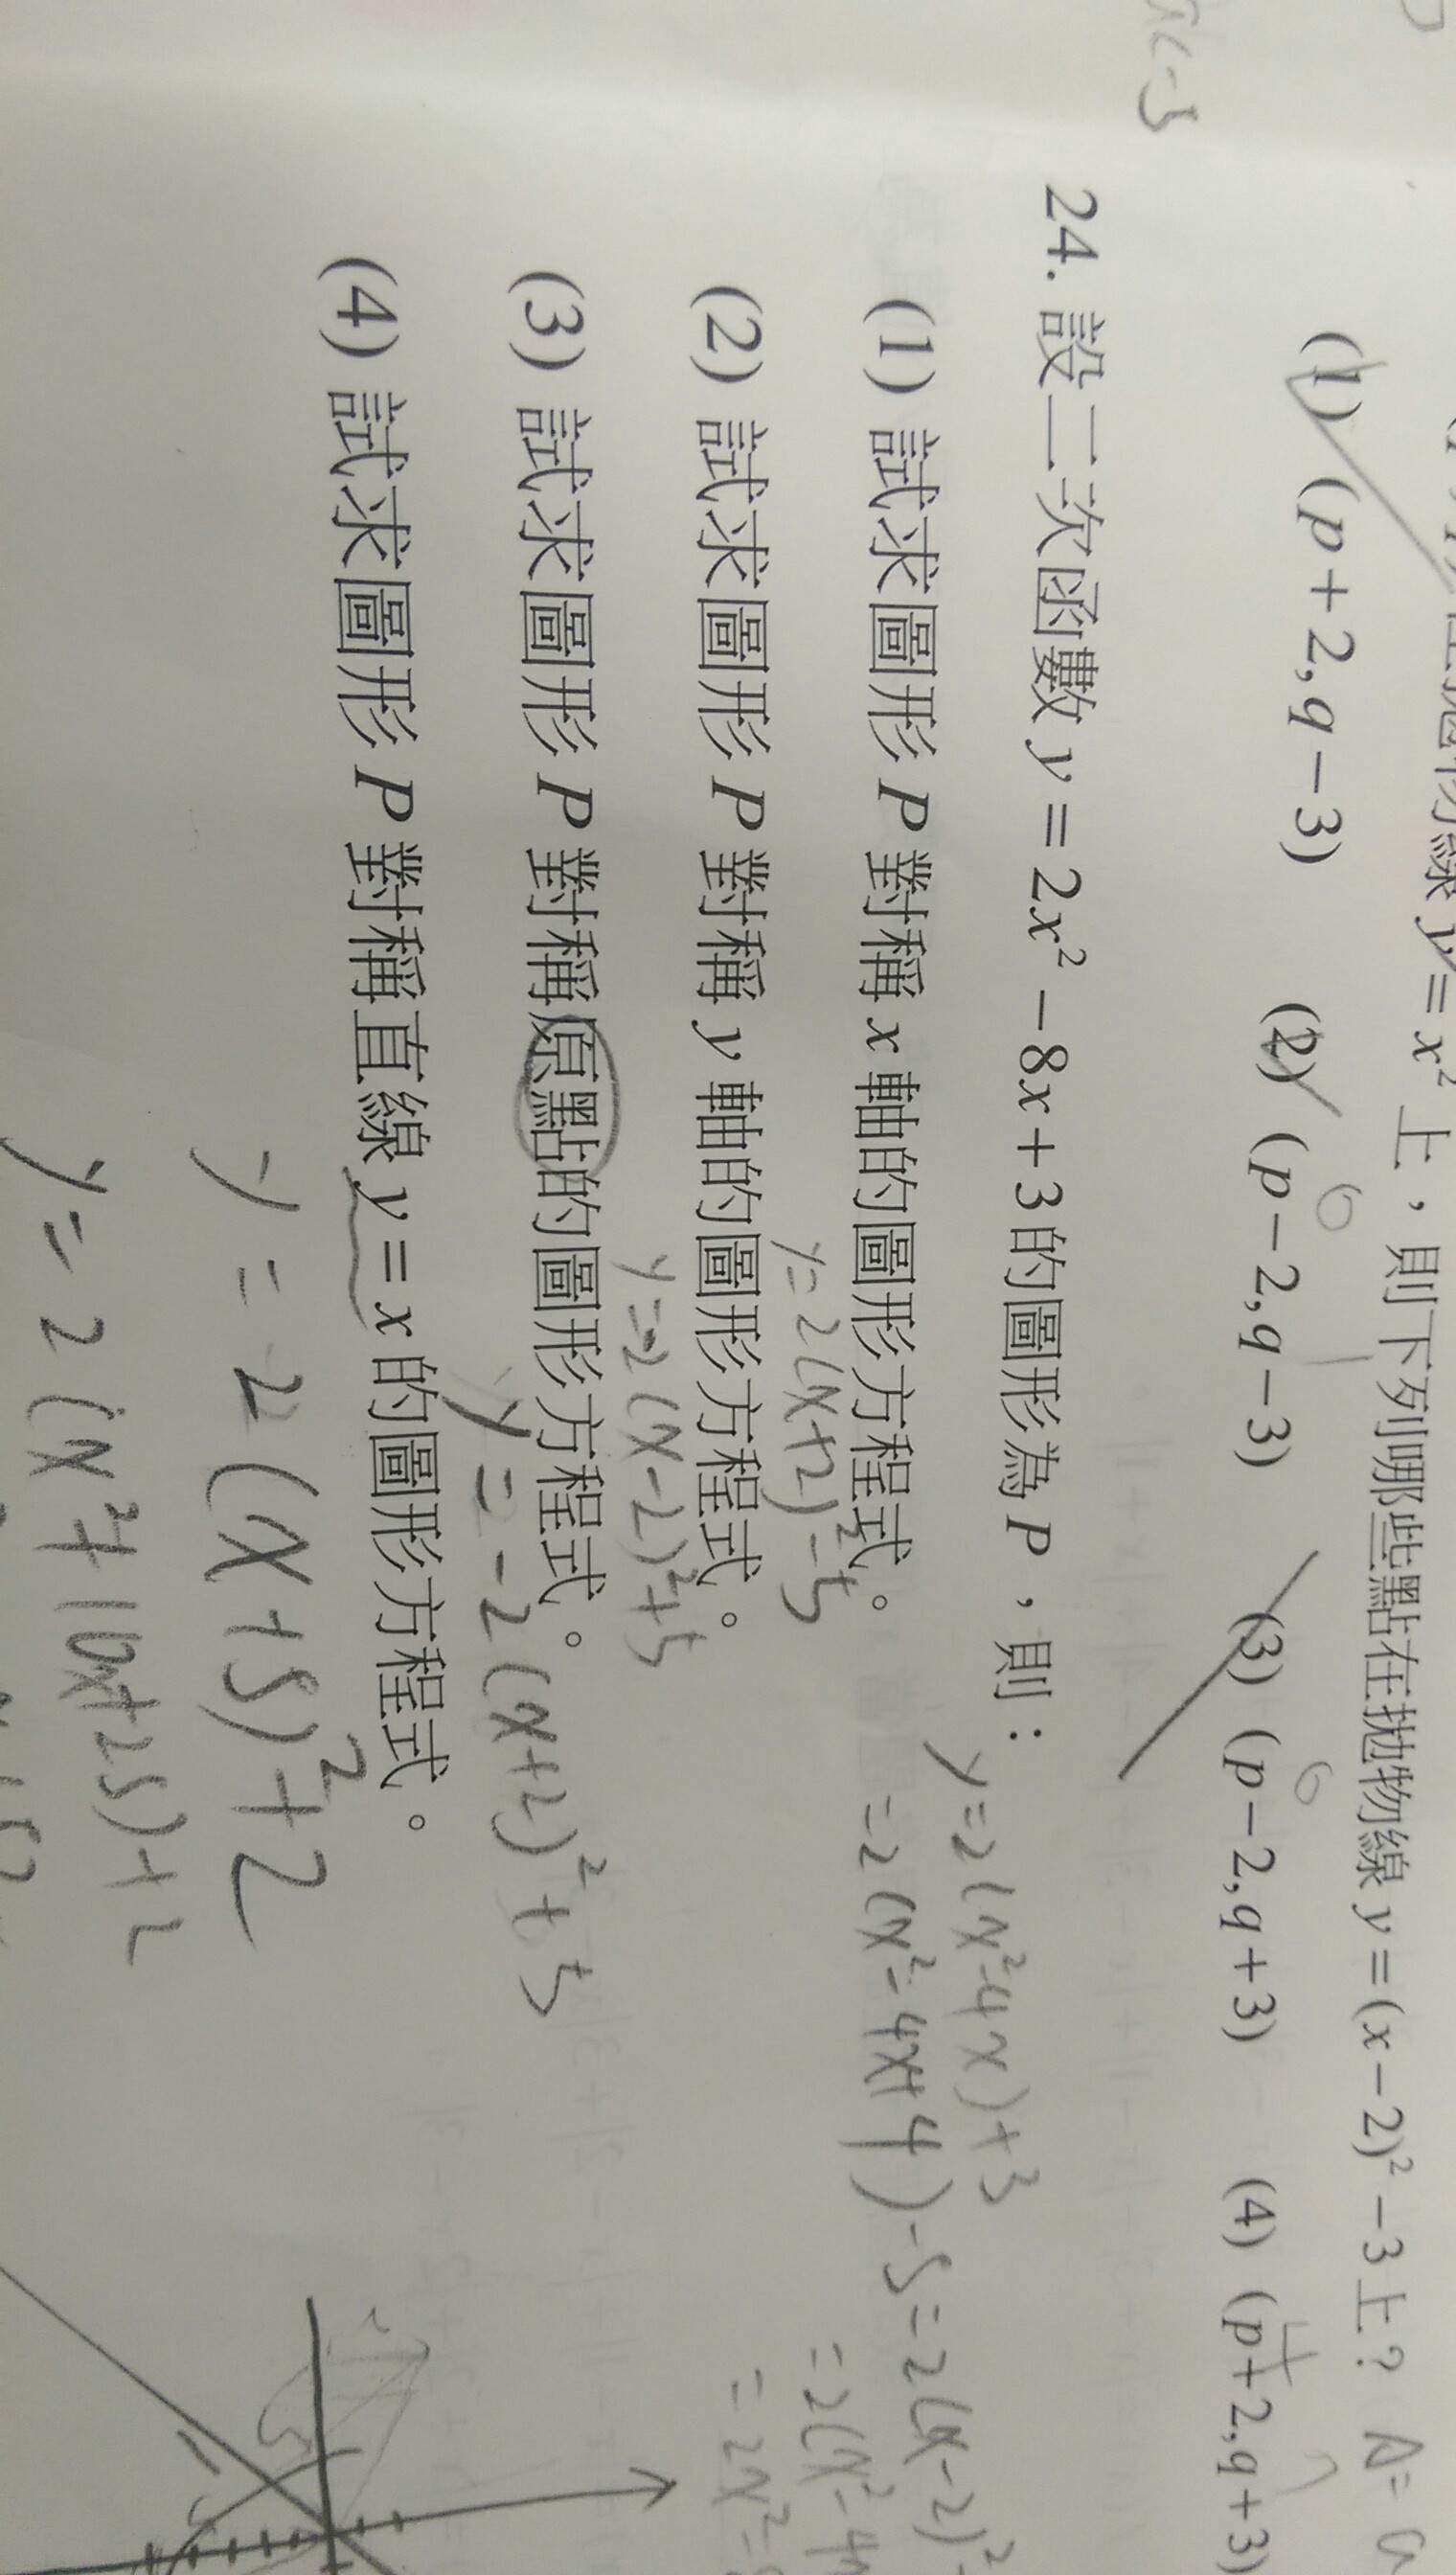 在拋物線 y = x² 上，則下列哪些點在拋物線 y = (x − 2)² − 3 上？
(1) (p + 2, q − 3) (2) (p − 2, q − 3) (3) (p − 2, q + 3) (4) (p + 2, q + 3)
24. 設二次函數 y = 2x² − 8x + 3 的圖形為 P，則：
y = 2(x² - 4x) + 3
= 2(x² - 4x + 4) - 5 = 2(x - 2)²
(1) 試求圖形 P 對稱 x 軸的圖形方程式。
y = 2(x + 2)² - 5
(2) 試求圖形 P 對稱 y 軸的圖形方程式。
y = -2(x - 2)² + 5
(3) 試求圖形 P 對稱原點的圖形方程式。
y = -2(x + 2)² + 5
(4) 試求圖形 P 對稱直線 y = x 的圖形方程式。
y = 2(x + 5)² + 2
y = 2(x² + 10x + 25) + 2